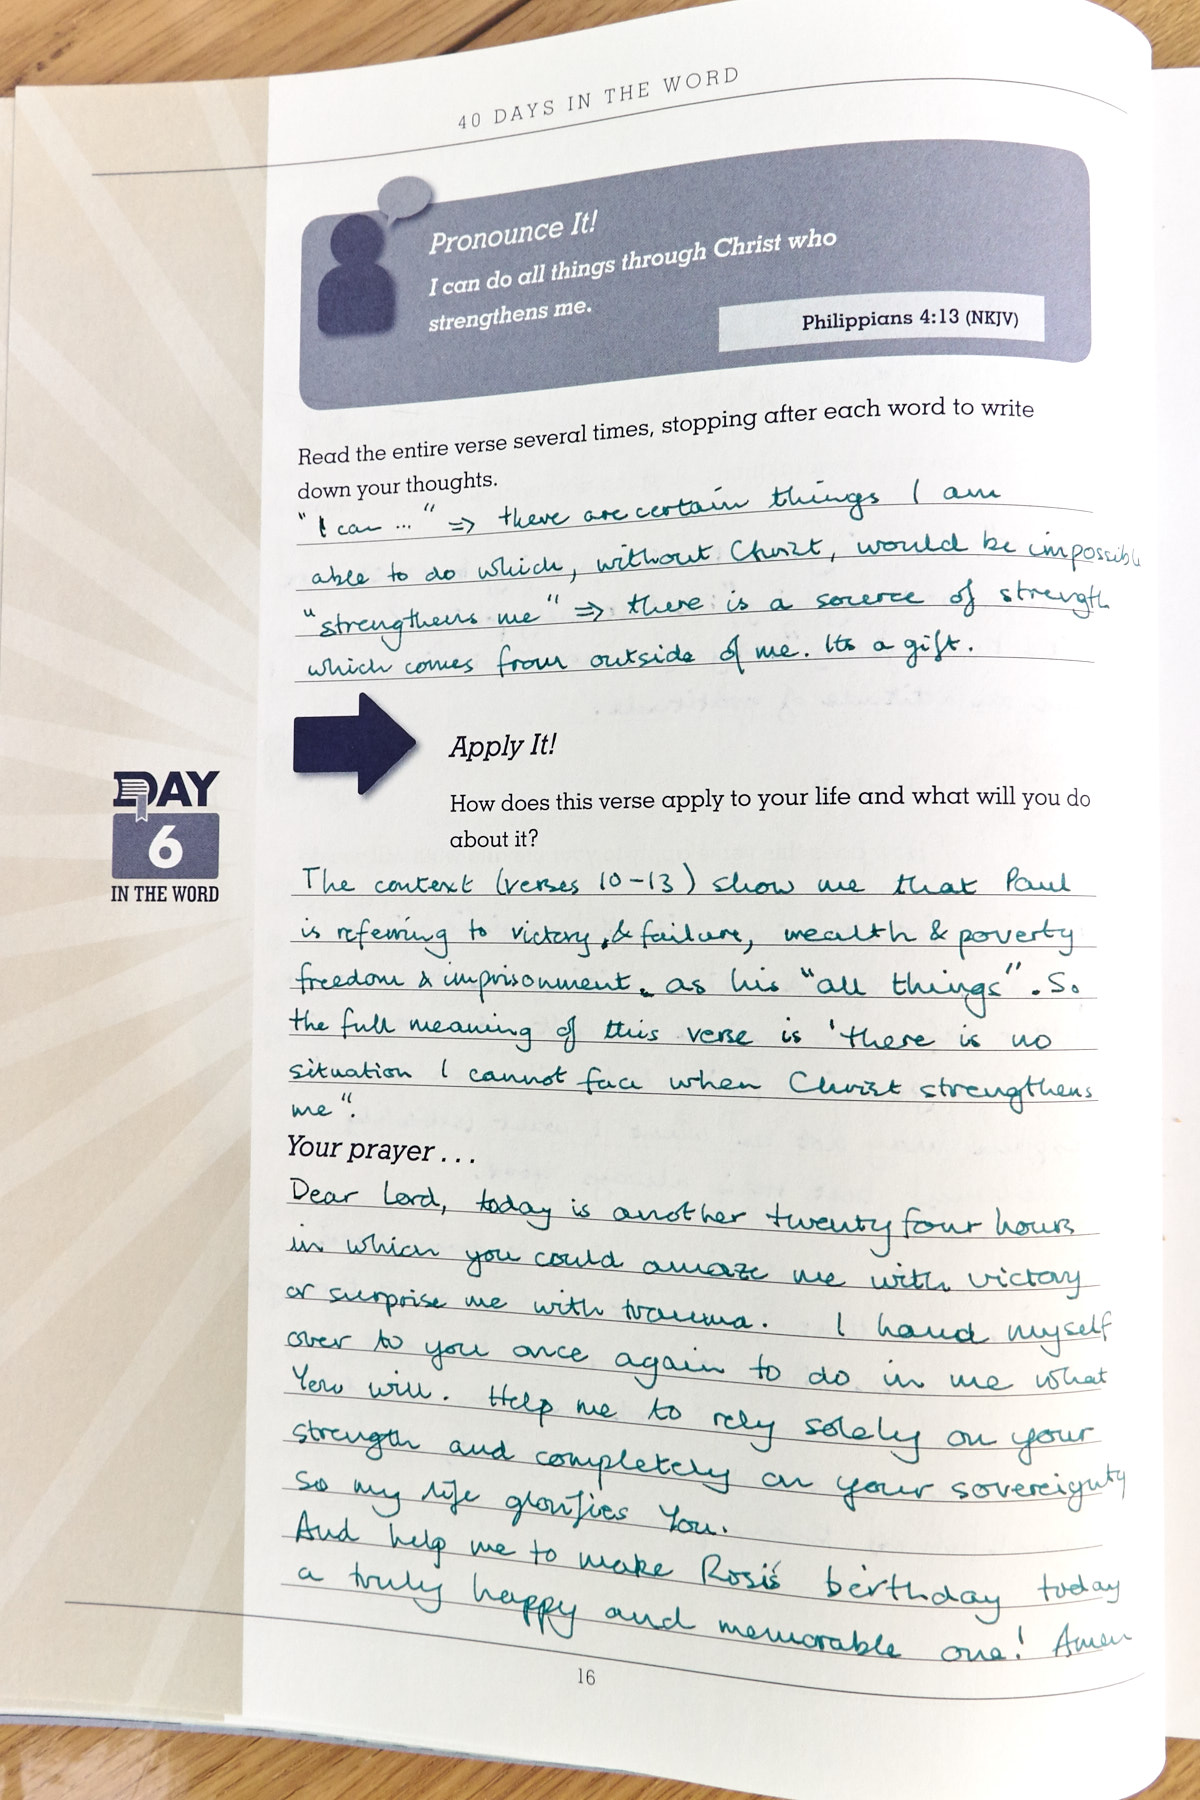 40 DAYS IN THE WORD
Pronounce It!
I can do all things through Christ who
strengthens me.
Philippians 4:13 (NKJV)
Read the entire verse several times, stopping after each word to write
down your thoughts.
"I can ..." => there are certain things I am
able to do which, without Christ, would be impossible
"strengthens me" => there is a source of strength
which comes from outside of me. Its a gift.
Apply It!
How does this verse apply to your life and what will you do
about it?
DAY
6
IN THE WORD
The context (verses 10-13) show me that Paul
is referring to victory, & failure, wealth & poverty
freedom & imprisonment. as his "all things". So
the full meaning of this verse is 'there is no
situation I cannot face when Christ strengthens
me".
Your prayer . . .
Dear Lord, today is another twenty four hours
in which you could amaze me with victory
or surprise me with trauma. I hand myself
over to you once again to do in me what
You will. Help me to rely solely on your
strength and completely on your sovereignty
so my life glorifies You.
And help me to make Rosis birthday today
a truly happy and memorable one! Amen
16